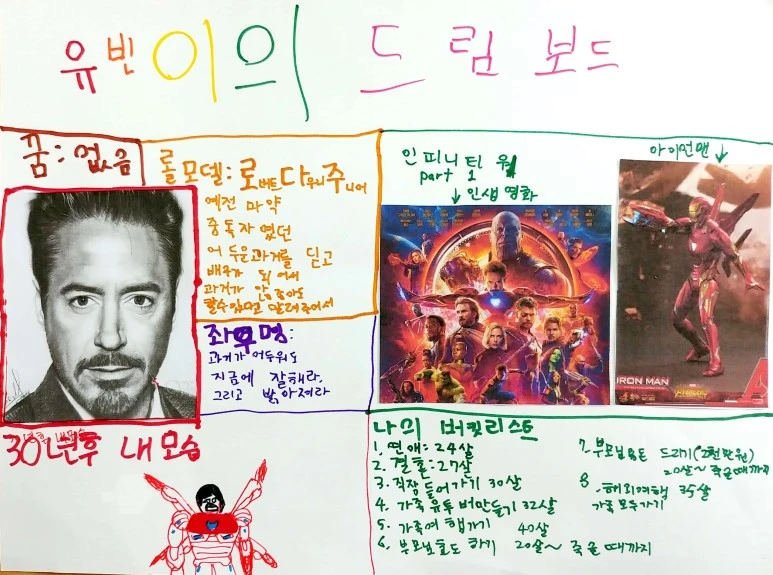 유빈이의 드림보드
꿈: 없음
롤모델: 로버트다우니주니어
예전 마약
중독자였던
어두운과거를 딛고
배우가 되어서
과거가 안좋아도
할수있다고 알려주어서
좌우명:
과거가 어두워도
지금에 잘해라.
그리고 밝아져라
30년후 내모습
인피니티 워
part 1
↓인생영화
아이언맨 ↓
IRON MAN
나의 버킷리스트
1. 연애: 24살
2. 결혼: 27살
3. 직장들어가기 30살
4. 가족 유투버만들기 32살
5. 가족여행가기 40살
6. 부모님효도 하기 20살~ 죽을 때까지
7. 부모님용돈 드리기(2천만원)
20살~죽을때까지
8. 해외여행 35살
가족 모두가기